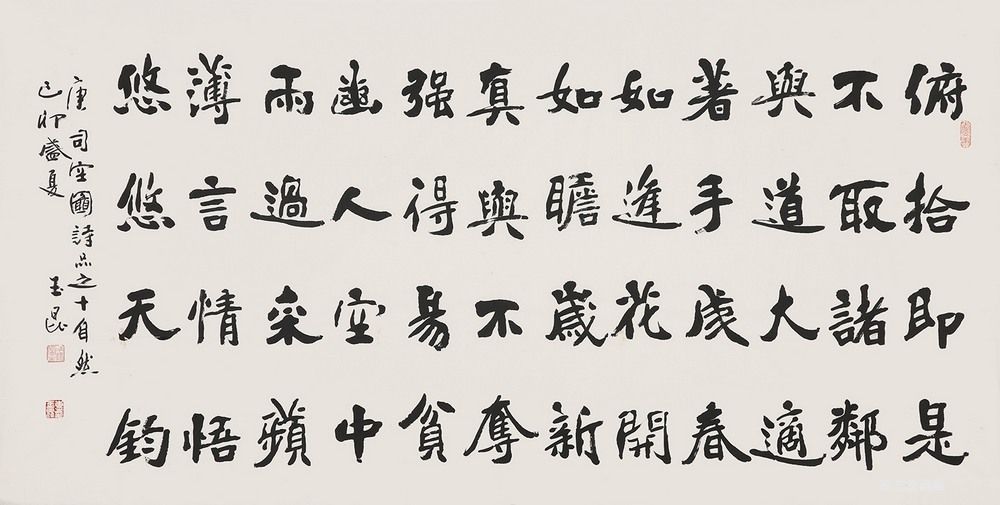 俯拾即是
不取諸鄰
與道大適
著手成春
如逢花開
如瞻歲新
真與不奪
强得易貧
幽人空中
雨過采蘋
薄言情悟
悠悠天鈞
唐司空圖詩品之十自然
己卯盛夏